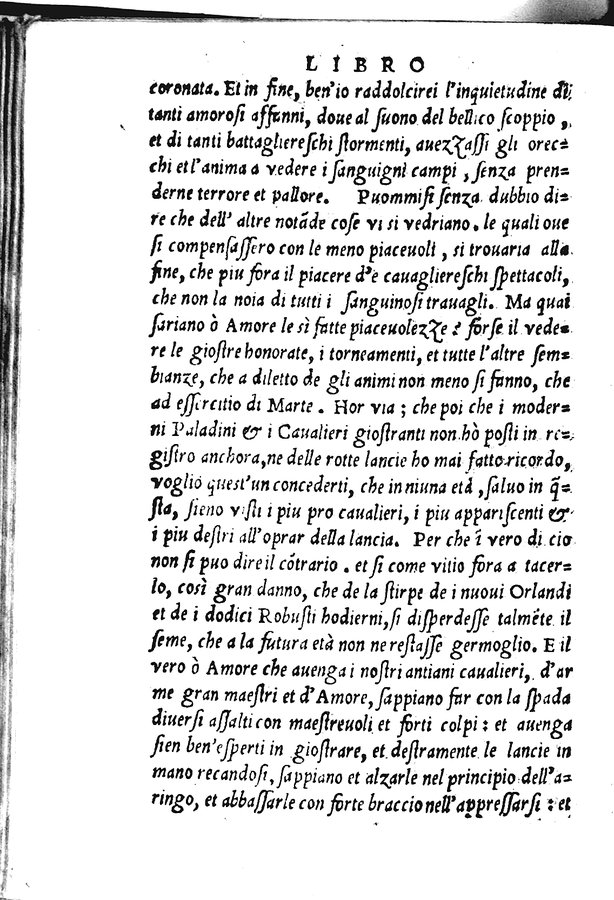 LIBRO
coronata. Et in fine, ben'io raddolcirei l'inquietudine di
tanti amorosi affanni, doue al suono del bellico scoppio,
et di tanti battagliereschi stormenti, auezzassi gli orec=
chi et l'anima a vedere i sanguigni campi, senza pren=
derne terrore et pallore. Puommisi senza dubbio di=
re che dell' altre notāde cose vi si vedriano. le quali oue
si compensassero con le meno piaceuoli, si trouaria alla
fine, che piu fora il piacere d'e cauagliereschi spettacoli,
che non la noia di tutti i sanguinosi trauagli. Ma quai
sariano ò Amore le sì fatte piaceuolezze? forse il vede=
re le giostre honorate, i torneamenti, et tutte l'altre sem=
bianze, che a diletto de gli animi non meno si fanno, che
ad essercitio di Marte. Hor via; che poi che i moder=
ni Paladini & i Caualieri giostranti non hò posti in re=
gistro anchora, ne delle rotte lancie ho mai fatto ricordo,
voglio quest'un concederti, che in niuna età, saluo in q̃=
sta, sieno visti i piu pro caualieri, i piu appariscenti &
i piu destri all'oprar della lancia. Per che ī vero di cio
non si puo dire il cōtrario. et si come vitio fora a tacer=
lo, così gran danno, che de la stirpe de i nuoui Orlandi
et de i dodici Robusti hodierni, si disperdesse talmēte il
seme, che a la futura età non ne restasse germoglio. E il
vero ò Amore che auenga i nostri antiani caualieri, d'ar
me gran maestri et d'Amore, sappiano far con la spada
diuersi assalti con maestreuoli et forti colpi: et auenga
sien ben'esperti in giostrare, et destramente le lancie in
mano recandosi, sappiano et alzarle nel principio dell'a=
ringo, et abbassarle con forte braccio nell'appressarsi: et